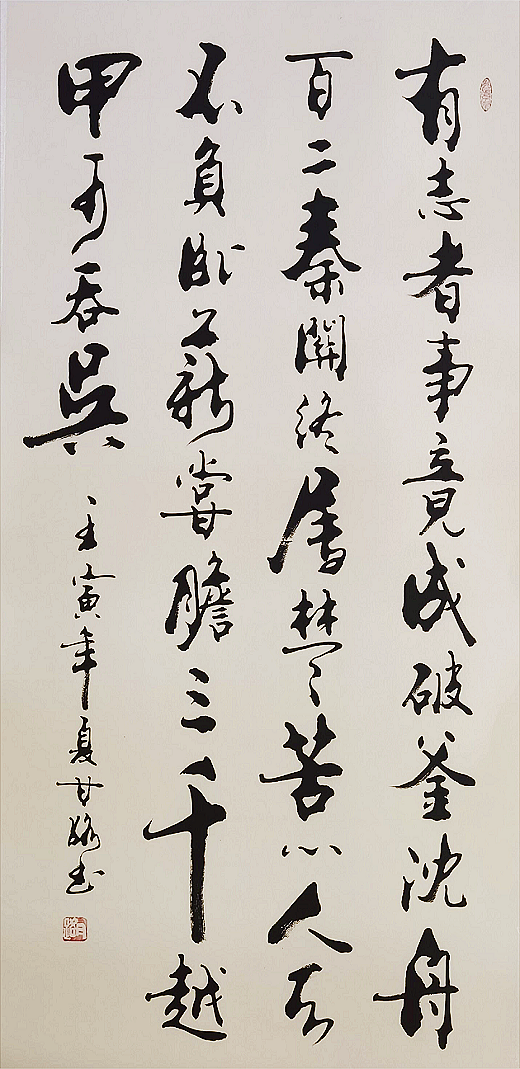 有志者事竟成破釜沈舟
百二秦關終屬楚苦心人天
不負卧薪嘗膽三千越
甲可吞吳
壬寅年夏甘书